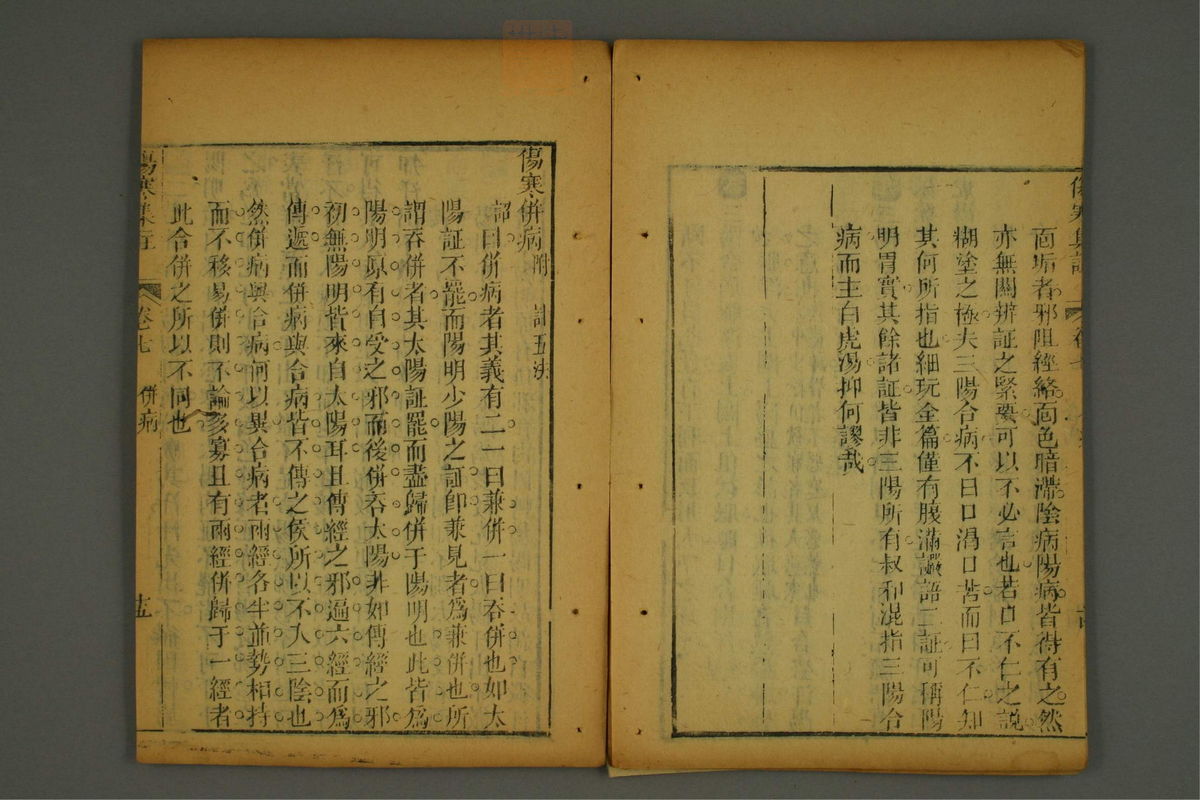 面垢者邪阻經絡面色暗滯陰病陽病皆得有之然
亦無關辨証之緊要可以不必言也若口不仁之說
糊塗之極夫三陽合病不曰口渴口苦而曰不仁知
其何所指也細玩全篇僅有腹滿讝語二証可稱陽
明胃實其餘諸証皆非三陽所有叔和混指三陽合
病而主白虎湯抑何謬哉
傷寒併病附 計五法
詔曰併病者其義有二一曰兼併一曰吞併也如太
陽証不罷而陽明少陽之証即兼見者爲兼併也所
謂吞併者其太陽証罷而盡歸併于陽明也此皆爲
陽明原有自受之邪而後併吞太陽非如傳經之邪
初無陽明皆來自太陽耳且傳經之邪遍六經而爲
傳遞而併病與合病皆不傳之候所以不入三陰也
然併病與合病何以異合病者兩經各半並勢相持
而不移易併則不論多寡且有兩經併歸于一經者
此合併之所以不同也
傷寒集註 卷七 併病 十五